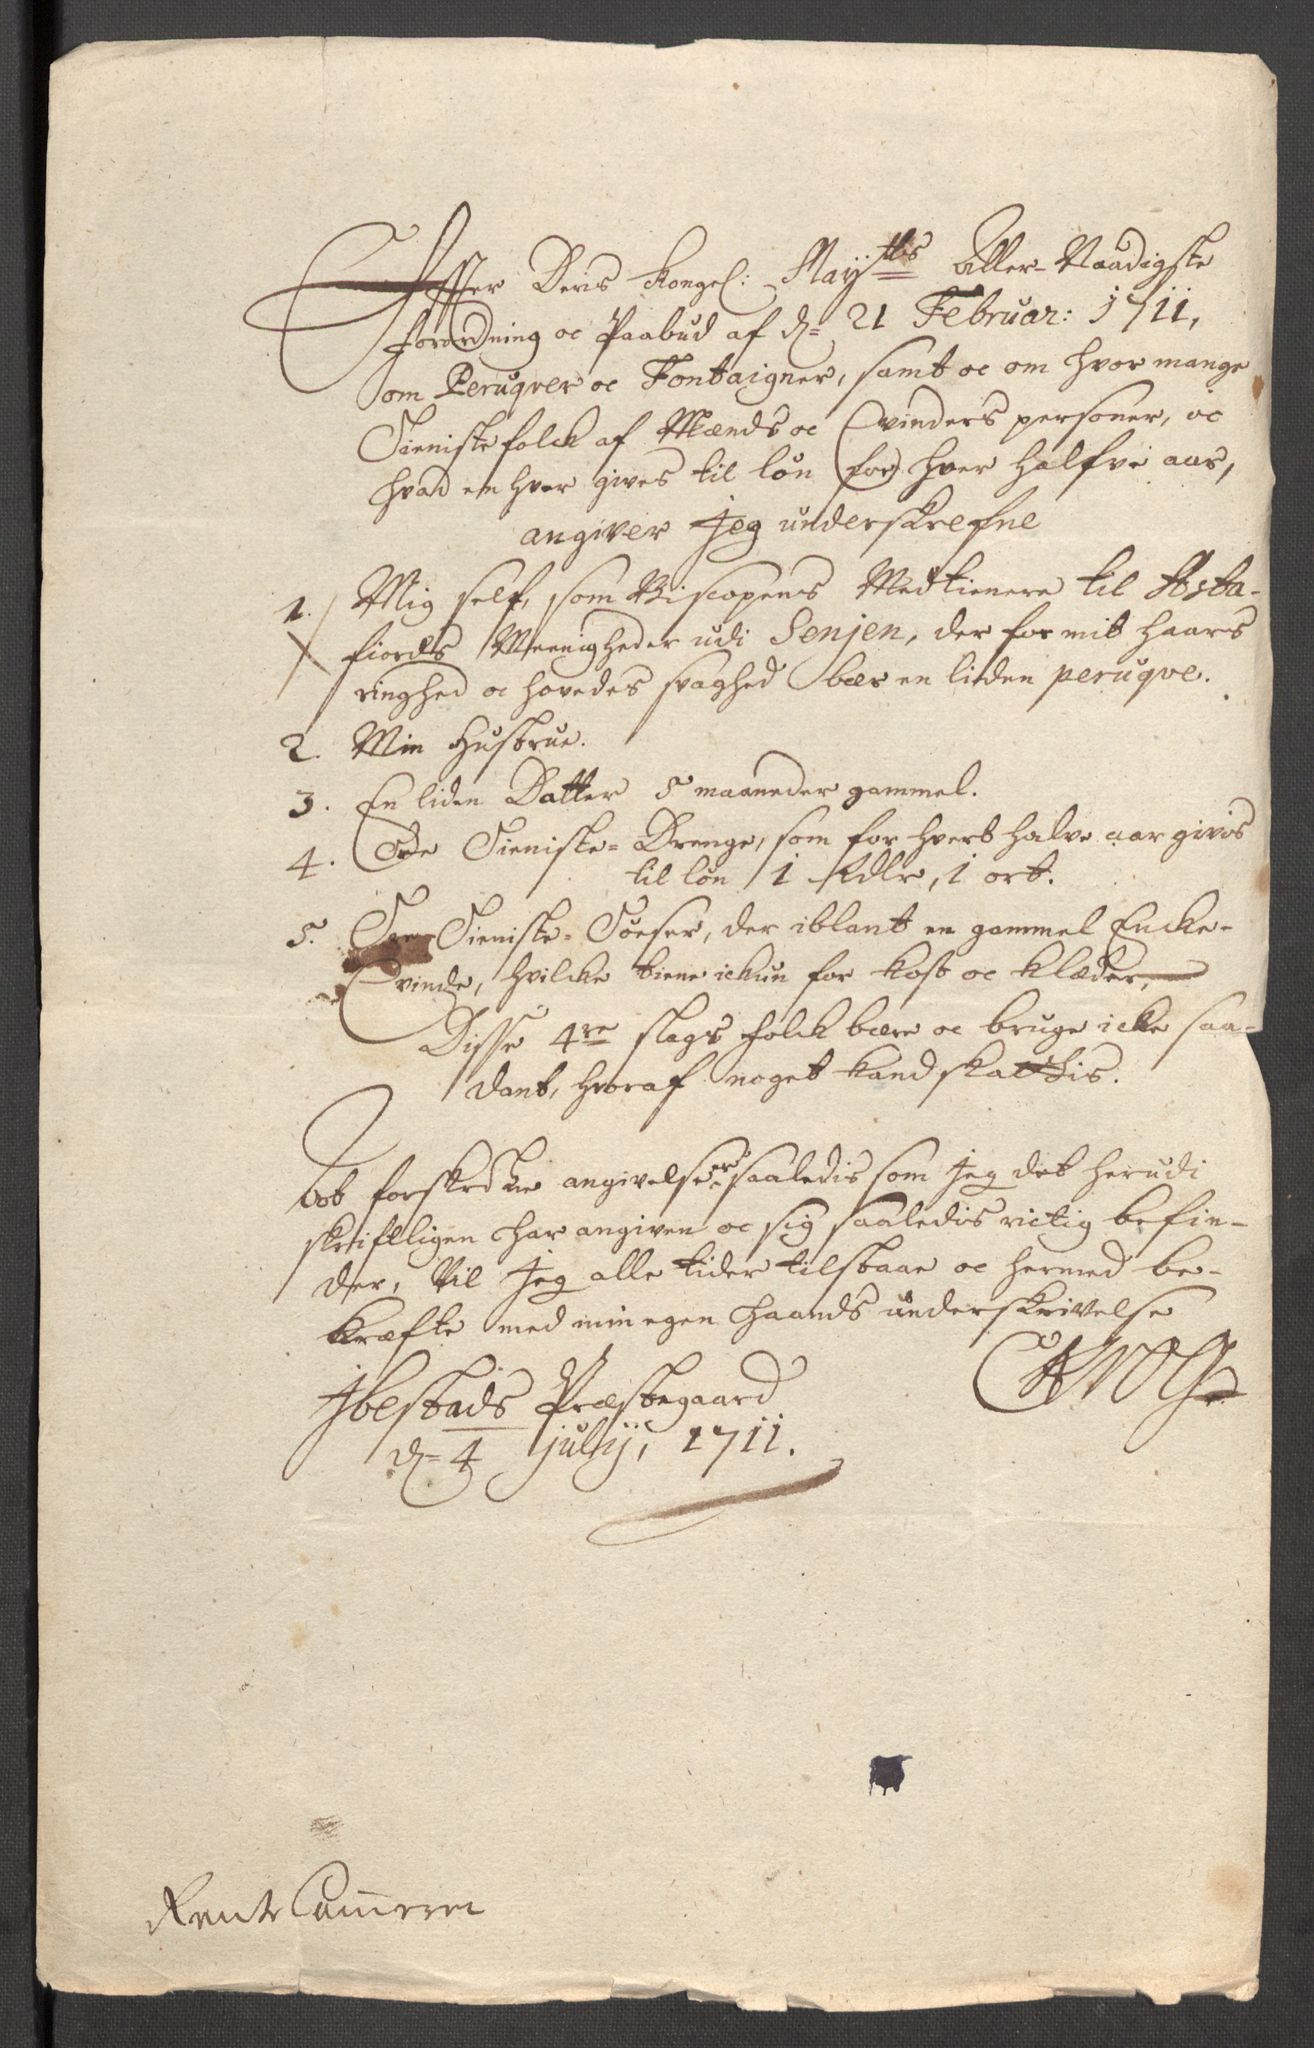 Efter Deris Kongel: Mayjtts Aller-Naadigste
forordning oc Paabud af d= 21 Februar: 1711,
om Peruqver oc Fontaigner, samt oc om hvor mange
Tieniste folck af Mænds oc Qvinders personer, oc
hvad en hver gives til løn for hver halfve aar,
angiver Jeg underskrefne
1. Mig self, som Biscopens Medtienere til Asta-
fiords Meenigheder udi Senjen, der for mit haars
ringhed oc hovedes svaghed bær en liden peruqve.
2. Min Hustrue.
3. En liden Datter 5 maaneder gammel.
4. Tre Tieniste-Drenge, som for hvert halve aar givis
til løn 1 Rdlr, 1 ort.
5. Tre Tieniste-Tøeser, der iblant en gammel Encke-
Qvinde, hvilcke tiene ickun for kost oc klæder,
Disse 4re slags folck bære oc bruge icke saa-
dant, hvoraf noget kand skattis.
At forskrefne angivelse er saaledis som Jeg det herudi
skriftligen har angiven oc sig saaledis rictig befin-
der, Vil Jeg alle tider tilstaae oc hermed be-
kræfte med min egen haands underskrivelse
Ibestads Præstegaard
d= 4 julij, 1711.
Rente Cammeret